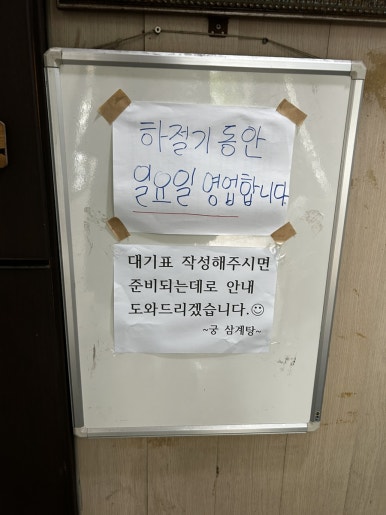 하절기 동안
일요일 영업합니다
대기표 작성해주시면
준비되는데로 안내
도와드리겠습니다.☺
~궁 삼계탕~